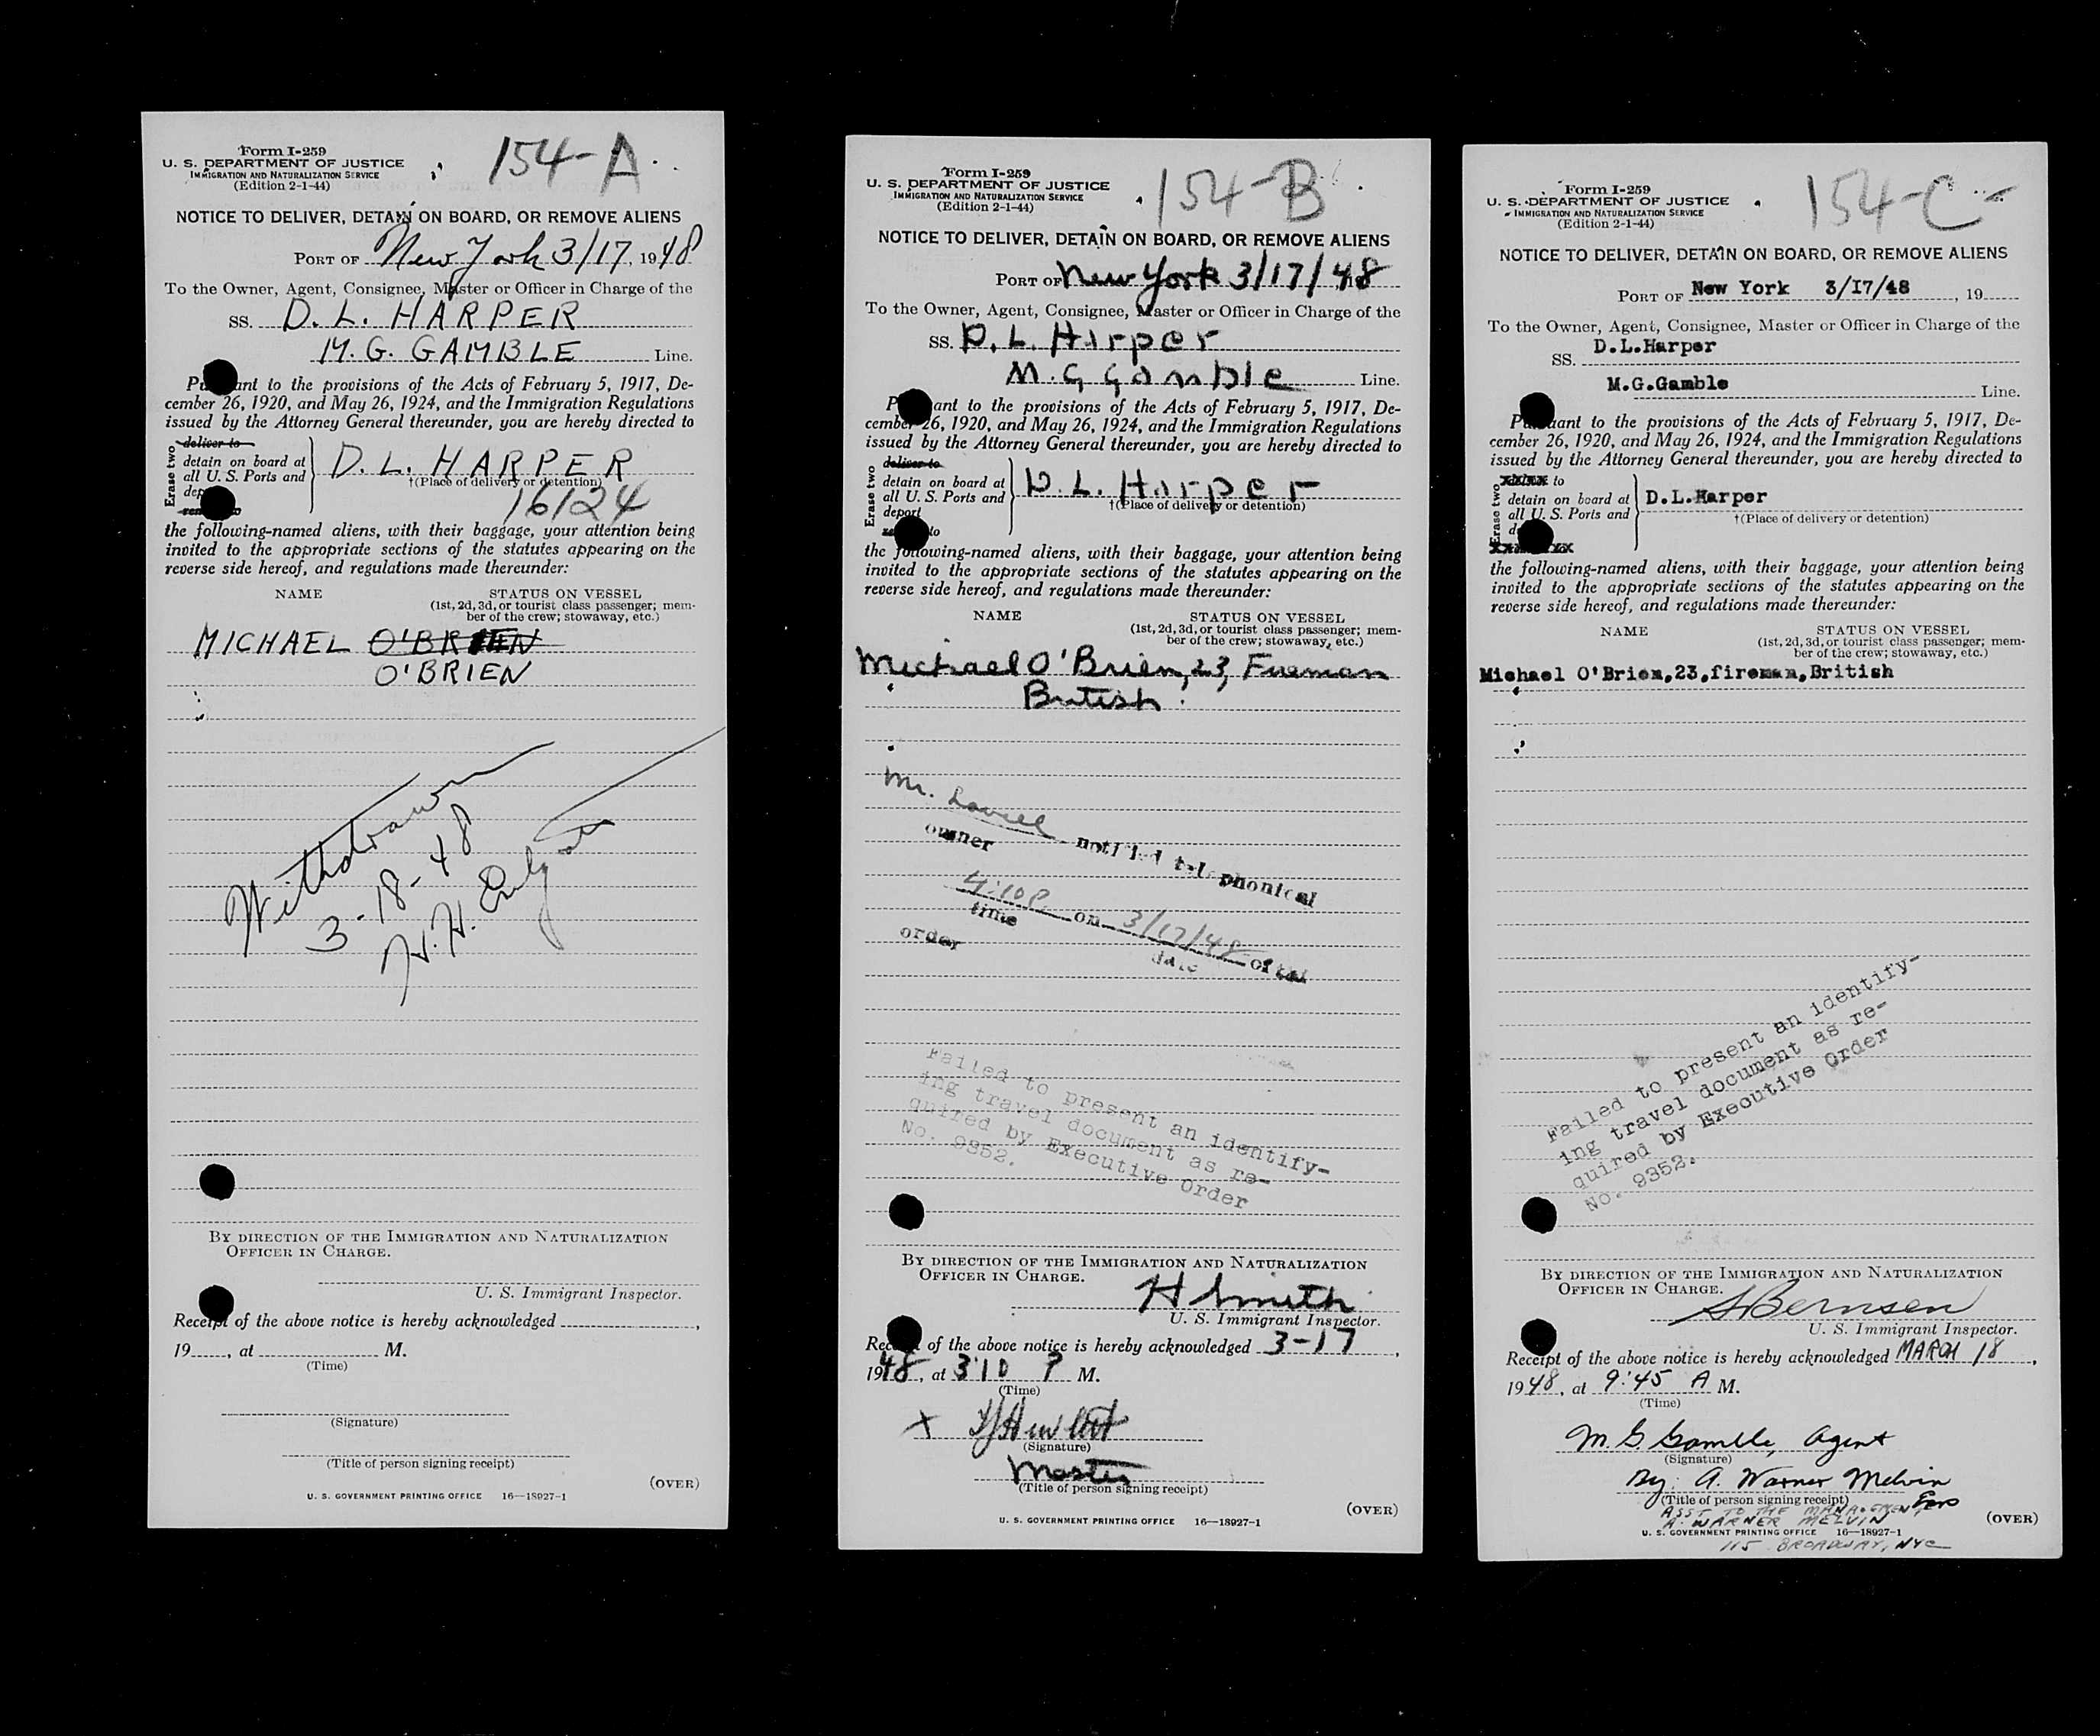 Form I-259
U. S. DEPARTMENT OF JUSTICE
IMMIGRATION AND NATURALIZATION SERVICE
(Edition 2-1-44)
154-A
NOTICE TO DELIVER, DETAIN ON BOARD, OR REMOVE ALIENS
PORT OF New York 3/17, 1948
To the Owner, Agent, Consignee, Master or Officer in Charge of the
SS. D. L. HARPER
M. G. GAMBLE Line.
Pu ant to the provisions of the Acts of February 5, 1917, De-
cember 26, 1920, and May 26, 1924, and the Immigration Regulations
issued by the Attorney General thereunder, you are hereby directed to
Erase two
deliver to
detain on board at
all U. S. Ports and
dep
D. L. HARPER
†(Place of delivery or detention)
16124
the following-named aliens, with their baggage, your attention being
invited to the appropriate sections of the statutes appearing on the
reverse side hereof, and regulations made thereunder:
NAME STATUS ON VESSEL
(1st, 2d, 3d, or tourist class passenger; mem-
ber of the crew; stowaway, etc.)
MICHAEL O'BRIEN
O'BRIEN
Withdrawn
3-18-48
H. H.
BY DIRECTION OF THE IMMIGRATION AND NATURALIZATION
OFFICER IN CHARGE.
U. S. Immigrant Inspector.
Receipt of the above notice is hereby acknowledged ,
19 , at M.
(Time)
(Signature)
(Title of person signing receipt)
(OVER)
U. S. GOVERNMENT PRINTING OFFICE 16—18927-1
Form I-259
U. S. DEPARTMENT OF JUSTICE
IMMIGRATION AND NATURALIZATION SERVICE
(Edition 2-1-44)
154-B
NOTICE TO DELIVER, DETAIN ON BOARD, OR REMOVE ALIENS
PORT OF New York 3/17/48
To the Owner, Agent, Consignee, Master or Officer in Charge of the
SS. D. L. Harper
M. G Gamble Line.
P ant to the provisions of the Acts of February 5, 1917, De-
cember 26, 1920, and May 26, 1924, and the Immigration Regulations
issued by the Attorney General thereunder, you are hereby directed to
Erase two
deliver to
detain on board at
all U. S. Ports and
deport
to
D. L. Harper
†(Place of delivery or detention)
the following-named aliens, with their baggage, your attention being
invited to the appropriate sections of the statutes appearing on the
reverse side hereof, and regulations made thereunder:
NAME STATUS ON VESSEL
(1st, 2d, 3d, or tourist class passenger; mem-
ber of the crew; stowaway, etc.)
Michael O'Brien, 23, Fireman
British.
Mr. notified telephonical
owner
4:10P. on 3/17/48 of
time date
order
Failed to present an identify-
ing travel document as re-
quired by Executive Order
No. 9352.
BY DIRECTION OF THE IMMIGRATION AND NATURALIZATION
OFFICER IN CHARGE.
H Smith
U. S. Immigrant Inspector.
Receipt of the above notice is hereby acknowledged 3-17,
1948, at 3:10 P M.
(Time)
X
(Signature)
Master
(Title of person signing receipt)
(OVER)
U. S. GOVERNMENT PRINTING OFFICE 16—18927-1
Form I-259
U. S. DEPARTMENT OF JUSTICE
IMMIGRATION AND NATURALIZATION SERVICE
(Edition 2-1-44)
154-C
NOTICE TO DELIVER, DETAIN ON BOARD, OR REMOVE ALIENS
PORT OF New York 3/I7/48, 19
To the Owner, Agent, Consignee, Master or Officer in Charge of the
SS. D.L.Harper
M.G.Gamble Line.
P uant to the provisions of the Acts of February 5, 1917, De-
cember 26, 1920, and May 26, 1924, and the Immigration Regulations
issued by the Attorney General thereunder, you are hereby directed to
Erase two
to
detain on board at
all U. S. Ports and
d
D.L.Harper
†(Place of delivery or detention)
the following-named aliens, with their baggage, your attention being
invited to the appropriate sections of the statutes appearing on the
reverse side hereof, and regulations made thereunder:
NAME STATUS ON VESSEL
(1st, 2d, 3d, or tourist class passenger; mem-
ber of the crew; stowaway, etc.)
Michael O'Brien,23,fireman,British
Failed to present an identify-
ing travel document as re-
quired by Executive Order
No. 9352.
BY DIRECTION OF THE IMMIGRATION AND NATURALIZATION
OFFICER IN CHARGE.
S Bernsen
U. S. Immigrant Inspector.
Receipt of the above notice is hereby acknowledged MARCH 18,
1948, at 9:45 A M.
(Time)
M. G. Gamble, Agent
(Signature)
By: A. Warner Melvin
(Title of person signing receipt)
ASST TO THE MANAGEMENT
A. WARNER MELVIN
U. S. GOVERNMENT PRINTING OFFICE 16—18927-1
(OVER)
115 BROADWAY, NYC